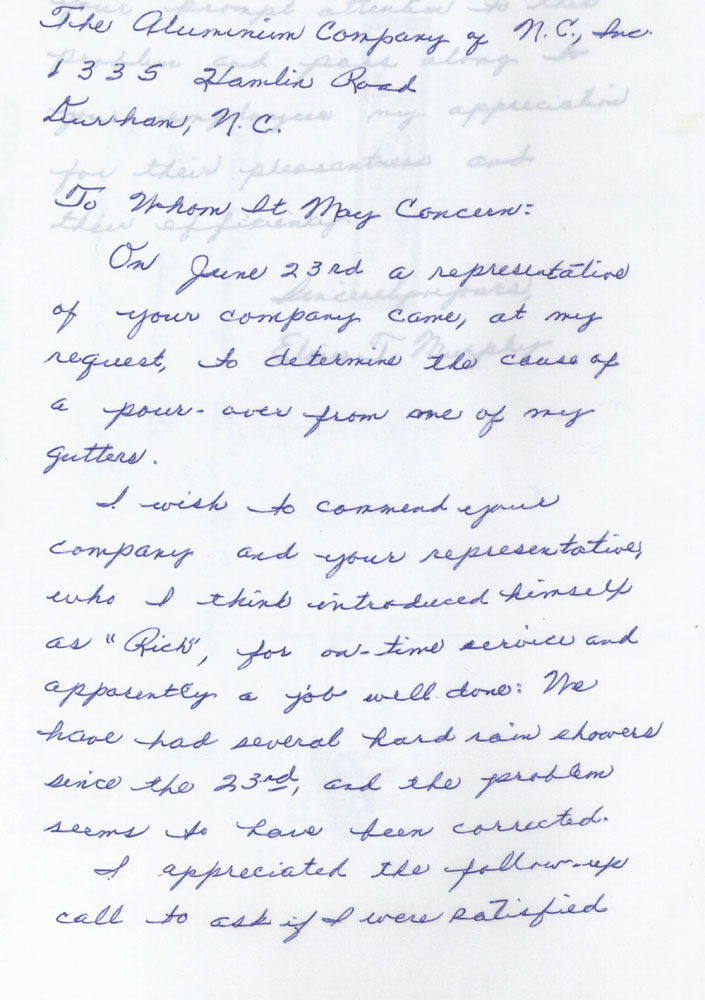 The Aluminum Company of N.C., Inc.
1335 Hamlin Road
Durham, N.C.
To Whom It May Concern:
On June 23rd a representative
of your company came, at my
request, to determine the cause of
a pour-over from one of my
gutters.
I wish to commend your
company and your representative,
who I think introduced himself
as "Rich", for on-time service and
apparently a job well done: We
have had several hard rain showers
since the 23rd, and the problem
seems to have been corrected.
I appreciated the follow-up
call to ask if I were satisfied